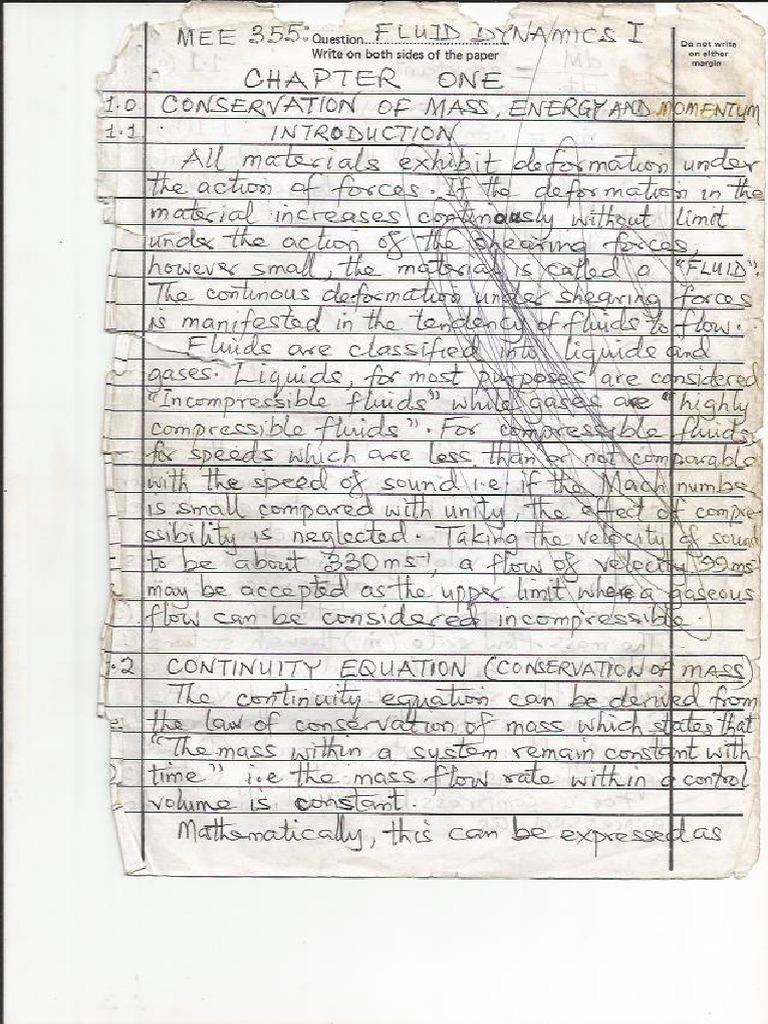 MEE 355: Question FLUID DYNAMICS I
Write on both sides of the paper
Do not write
on either
margin
CHAPTER ONE
1.0 CONSERVATION OF MASS, ENERGY AND MOMENTUM
1.1 INTRODUCTION
All materials exhibit deformation under
the action of forces. If the deformation in the
material increases continously without limit
under the action of the shearing forces,
however small, the material is called a "FLUID".
The continous deformation under shearing forces
is manifested in the tendency of fluids to flow.
Fluids are classified into liquids and
gases. Liquids, for most purposes are considered
"Incompressible fluids" while gases are "highly
compressible fluids". For compressible fluids
for speeds which are less than or not comparable
with the speed of sound i.e if the Mach number
is small compared with unity, the effect of compre-
ssibility is neglected. Taking the velocity of sound
to be about 330ms⁻¹, a flow of velocity 99ms⁻¹
may be accepted as the upper limit where a gaseous
flow can be considered incompressible.
1.2 CONTINUITY EQUATION (CONSERVATION OF MASS)
The continuity equation can be derived from
the law of conservation of mass which states that
"The mass within a system remain constant with
time" i.e the mass flow rate within a control
volume is constant.
Mathematically, this can be expressed as